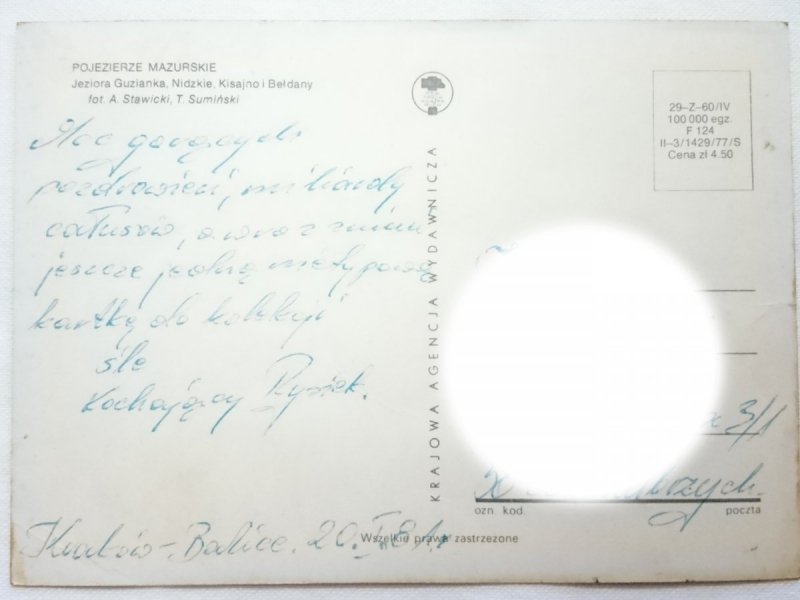 POJEZIERZE MAZURSKIE
Jeziora Guzianka, Nidzkie, Kisajno i Bełdany
fot. A. Stawicki, T. Sumiński
Moc gorących
pozdrowień, miliardy
całusów, a wraz z nimi
jeszcze jedną nietypową
kartkę do kolekcji
śle
kochający Rysiek.
Kraków-Balice. 20.
KRAJOWA AGENCJA WYDAWNICZA
29-Z-60/IV
100 000 egz.
F 124
II-3/1429/77/S
Cena zł 4.50
3/1
ozn. kod. poczta
Wszelkie prawa zastrzeżone